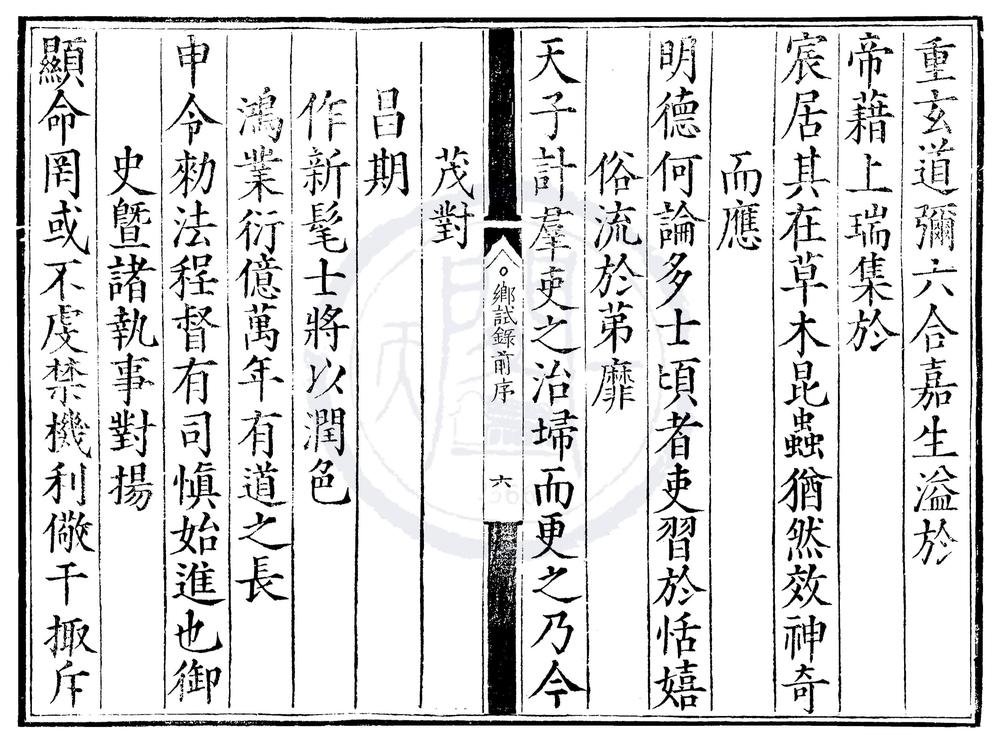 重玄道彌六合嘉生溢於
帝藉上瑞集於
宸居其在草木昆蟲猶然效神奇
而應
明德何論多士頃者吏習於恬嬉
俗流於苐靡
天子計羣吏之治埽而更之乃今
鄉試錄前序
六
茂對
昌期
作新髦士將以潤色
鴻業衍億萬年有道之長
申令勑法程督有司慎始進也御
史曁諸執事對揚
顯命罔或不虔禁機利儆干掫斥